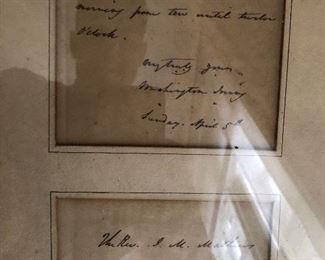 morning from ten until twelve
O'clock.
very truly yours
Washington Irving
Sunday. April 5th
The Rev. J. M. Mathews